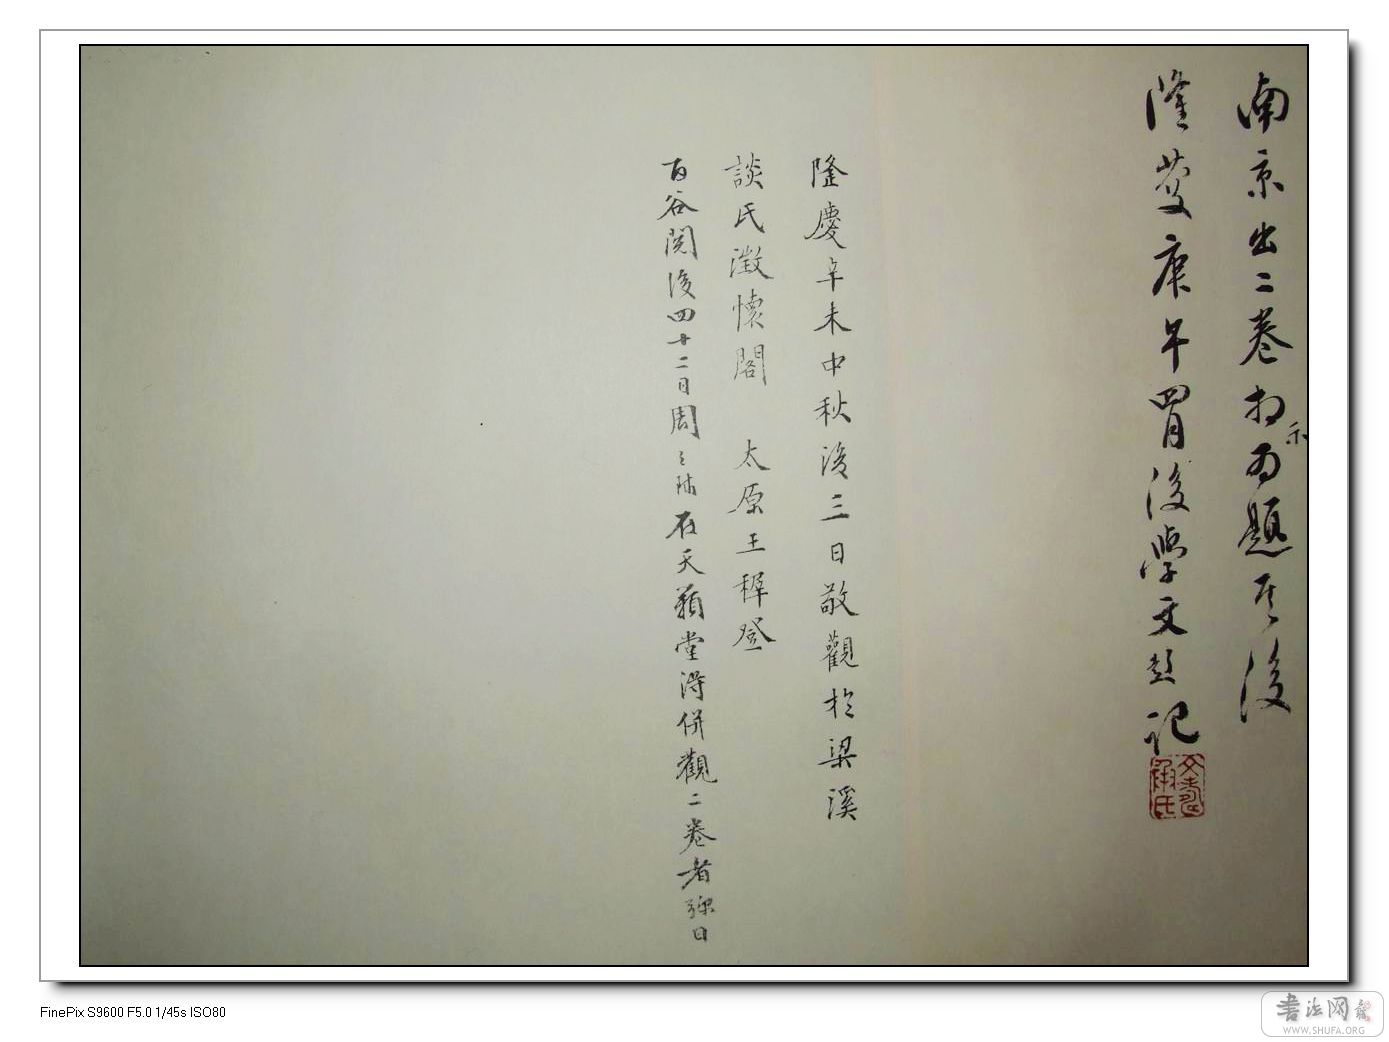 南京出二卷相示為題其後
隆慶庚午四月後學文嘉記
文嘉
休承氏
隆慶辛未中秋後三日敬觀於梁溪
談氏澂懷閣 太原王穉登
百谷閱後四十二日周之 在天籟堂得併觀二卷者彌日
FinePix S9600 F5.0 1/45s ISO80
書法网
WWW.SHUFA.ORG